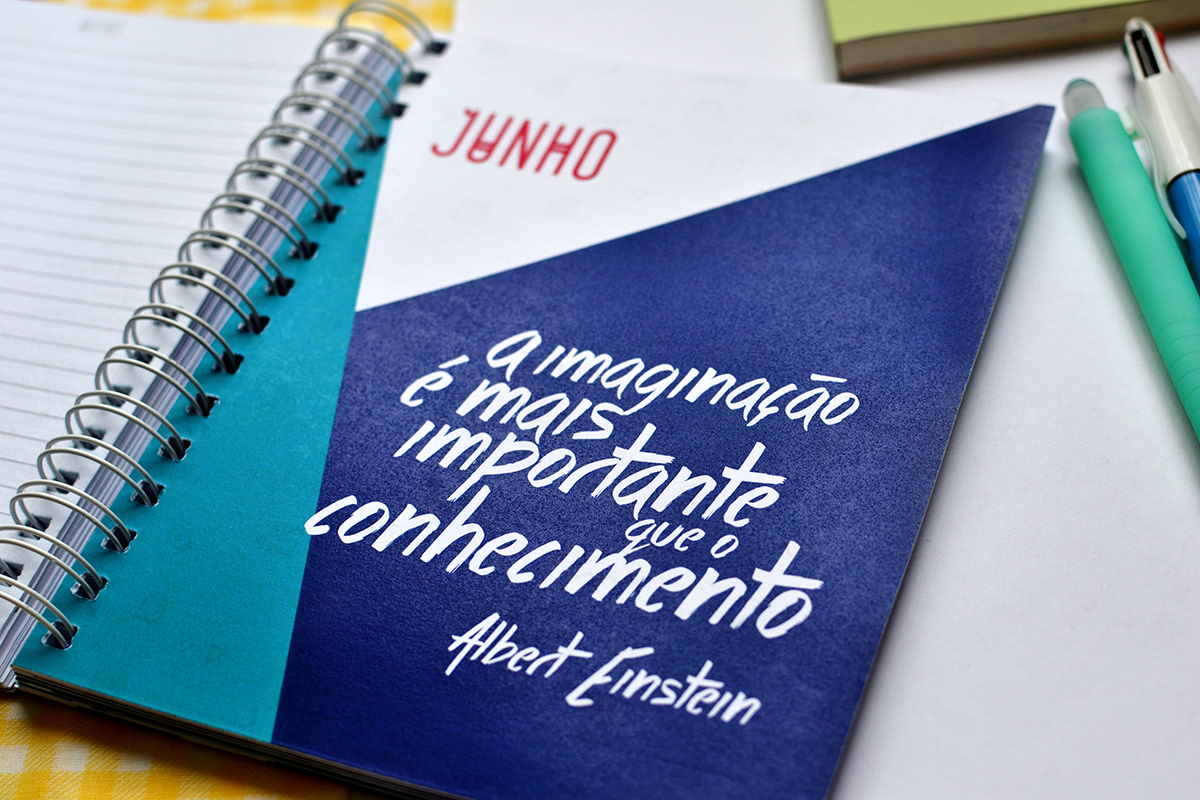 JUNHO
a imaginação
é mais
importante
que o
conhecimento
Albert Einstein